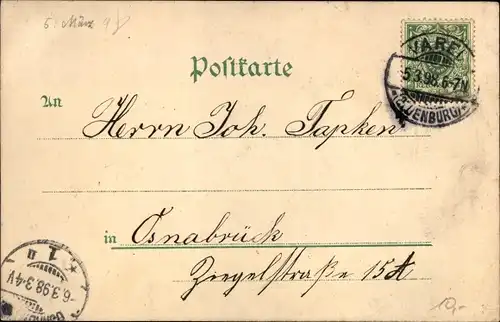 5. März 98
Postkarte
VAREL
5.3.98.6-7N
(OLDENBURG)
An
Herrn Joh. Tapken
in Osnabrück
Ziegelstraße 15A
1 n
6.3.98.3-4V
10,-